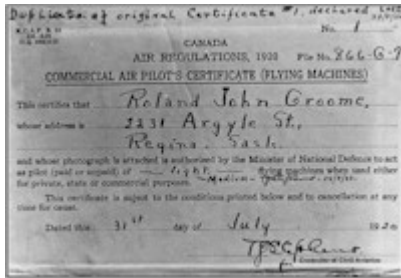 Duplicate of original Certificate #1, declared Lost
No. 1
CANADA
AIR REGULATIONS, 1920 File No. 866-G-9
COMMERCIAL AIR PILOT'S CERTIFICATE (FLYING MACHINES)
This certifies that Roland John Groome,
whose address is 2231 Argyle St,
Regina. Sask.
and whose photograph is attached is authorized by the Minister of National Defence to act
as pilot (paid or unpaid) of light flying machines when used either
for private, state or commercial purposes.
This certificate is subject to the conditions printed below and to cancellation at any
time for cause.
Dated this 31st day of July 1920
Controller of Civil Aviation